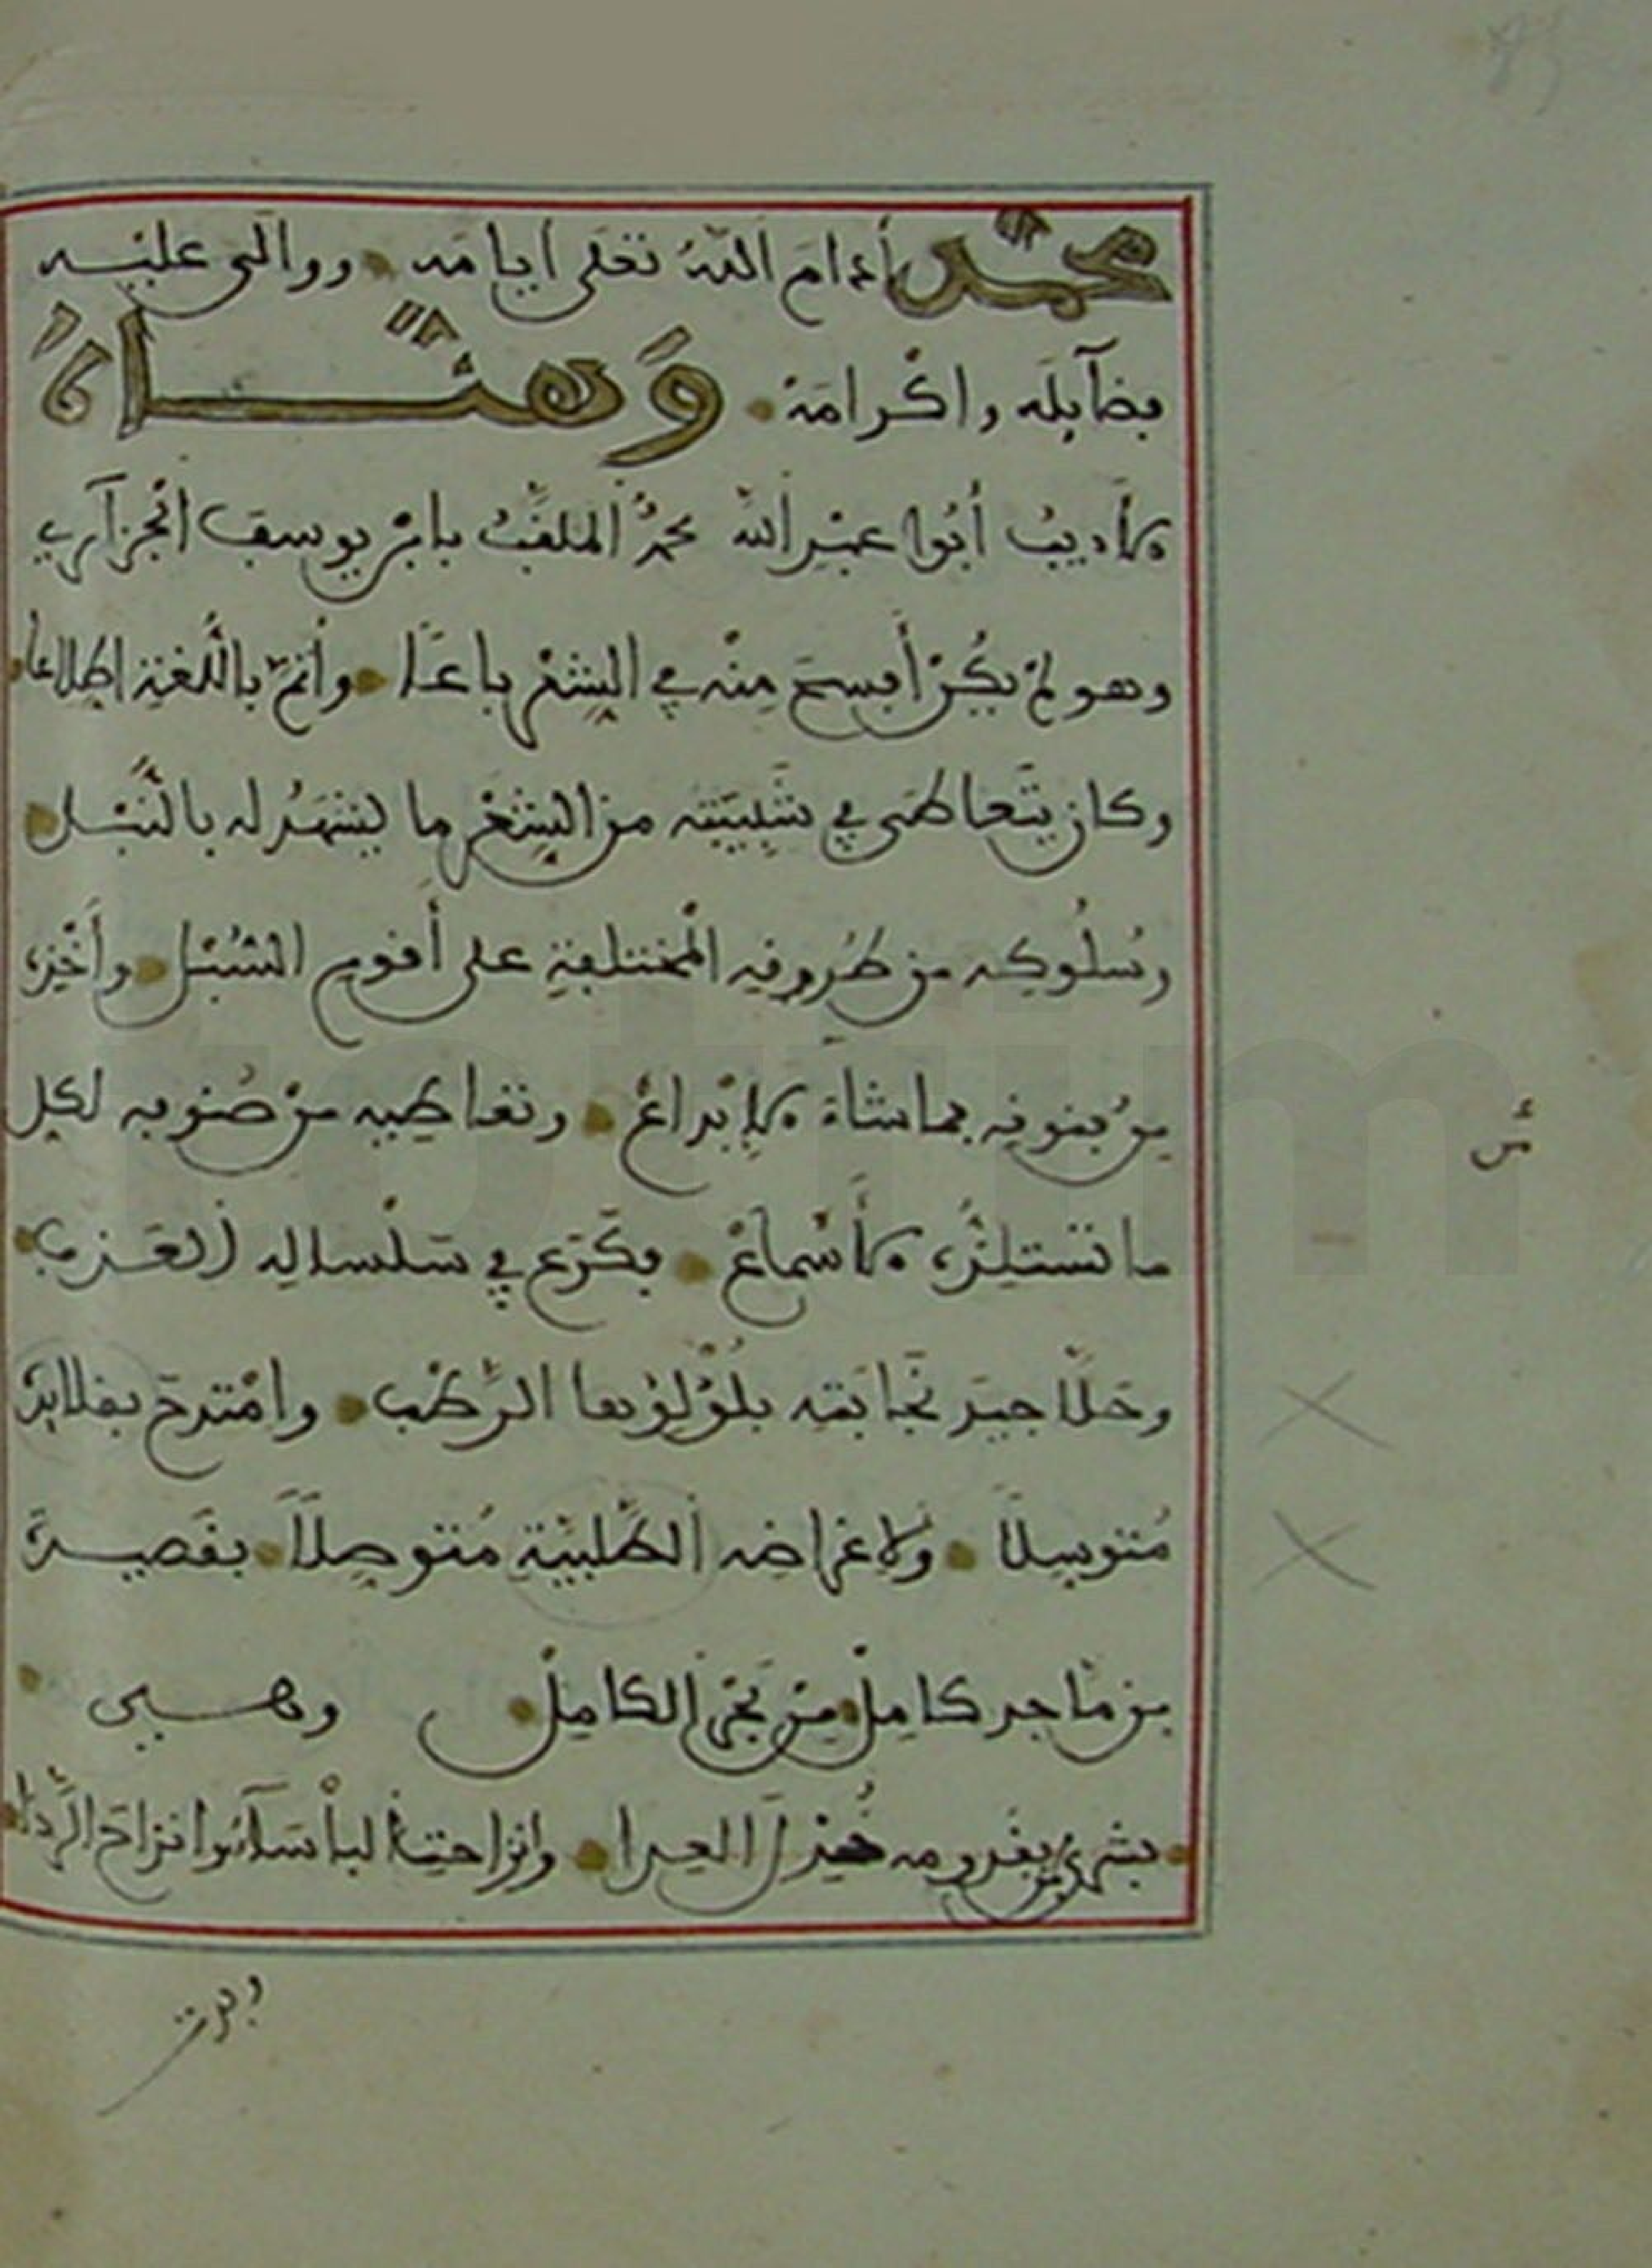 محمد أدام الله تعلى أيامه ووالى عليه
فضآيله وإكرامه وهنأه
الأديب أبوا عبد الله محمد الملقب بابن يوسف الجزآري
وهو لم يكن أفسح منه في الشعر باعا وأتم باللغة اطلاعا
وكان يتعاطى في شبيبته من الشعر ما يشهد له بالنبل
وسلوكه من طروقه المختلفة على أقوم السبل وأخذه
من فنونه بما شاء الإبداع وتعاطيه من صنوفه لكل
ما تستلذه الأسماع فكرع في سلساله العذب
وحلا جيد نجابته بلؤلؤها الرطب وامتدح بقلايد
متوسلا ولأغراضه الطلبية متوصلا بقصيدة
من ماجد كامل من بحر الكامل وهي
بشرى بقدومه خذل العدا وانزاحت لبأسآئوا نزاح الردا